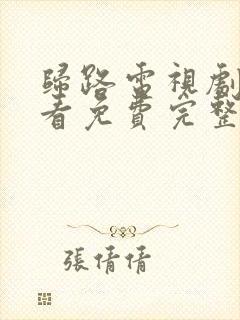 歸路電視劇
看免費完整
張倩倩